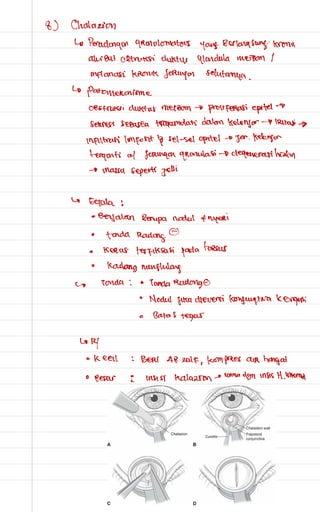 8) Chalazion
↳ Peradangan granulomatosa yang berlangsung kronis
akibat obstruksi duktus glandula meibom /
inflamasi kronik jaringan sekitarnya.
↳ Patomekanisme
obstruksi duktus meibom → proliferasi epitel →
sekresi sebasea dalam kelenjar → iritasi →
infiltrasi limfosit & sel-sel epitel → jar. kelenjar
terganti o/ jaringan granulasi → degenerasi hialin
→ massa seperti jelli
↳ Gejala :
• Benjolan berupa nodul ≠ nyeri
• tanda Radang ⊖
• Keras terfiksasi pada tarsus
• Kadang menghilang
↳ Tanda : • Tanda Radang ⊖
• Nodul jika dieversi konjungtiva
• Batas tegas
↳ R/
• Kecil : Beri AB zalf, kompres air hangat
• Besar : insisi kalazion →
Chalazion
Curette
Chalazion wall
Palpebral
conjunctiva
A
B
C
D